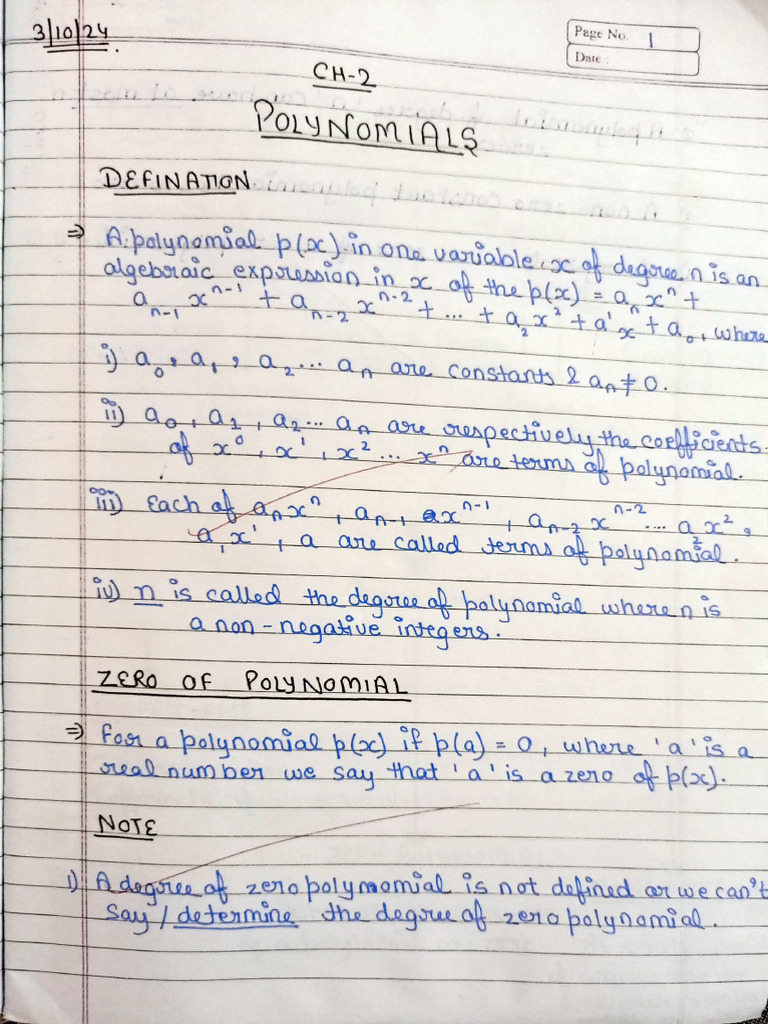 3/10/24.
Page No. 1
Date :
CH-2
POLYNOMIALS
DEFINATION
⇒ A polynomial p(x) in one variable x of degree n is an
algebraic expression in x of the p(x) = aₙxⁿ +
aₙ₋₁ xⁿ⁻¹ + aₙ₋₂ xⁿ⁻² + ... + a₂x² + a'x + a₀, where
i) a₀, a₁, a₂... aₙ are constants & aₙ ≠ 0.
ii) a₀, a₁, a₂... aₙ are respectively the coefficients
of x⁰, x¹, x² ... xⁿ are terms of polynomial.
iii) Each of aₙxⁿ, aₙ₋₁ xⁿ⁻¹, aₙ₋₂ xⁿ⁻² ... a₂x²,
a₁x¹, a are called terms of polynomial.
iv) n is called the degree of polynomial where n is
a non-negative integers.
ZERO OF POLYNOMIAL
⇒ For a polynomial p(x) if p(a) = 0, where 'a' is a
real number we say that 'a' is a zero of p(x).
NOTE
1) A degree of zero polynomial is not defined or we can't
say / determine the degree of zero polynomial.